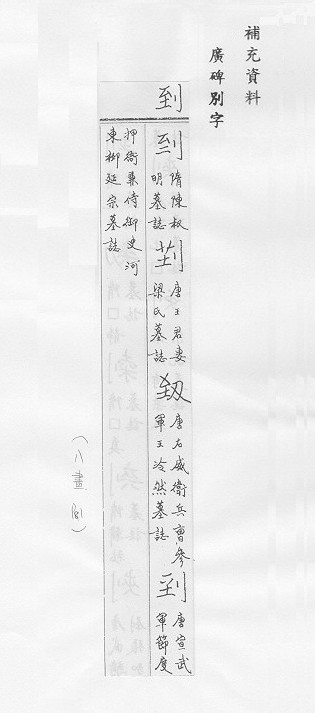 補充資料
廣碑別字
到
隋陳叔
明墓誌
唐王君妻
梁氏墓誌
唐右威衛兵曹參
軍王冷然墓誌
到
唐宣武
軍節度
押衙兼侍御史河
東柳延宗墓誌
(八畫)